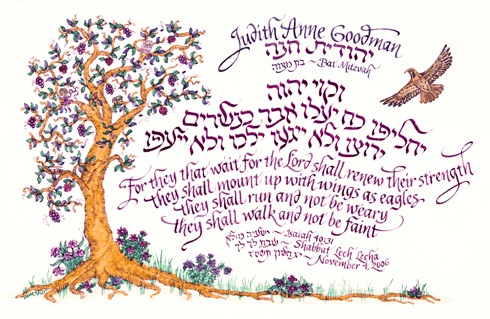 Judith Anne Goodman
יהודית חנה
בת מצוה ~ Bat Mitzvah
וקוי יהוה
יחליפו כח יעלו אבר כנשרים
ירוצו ולא ייגעו ילכו ולא ייעפו
For they that wait for the Lord shall renew their strength
they shall mount up with wings as eagles
they shall run and not be weary
they shall walk and not be faint
ישעיה מ:לא ~ Isaiah 40:31
שבת לך לך ~ Shabbat Lech Lecha
~ November 4, 2006